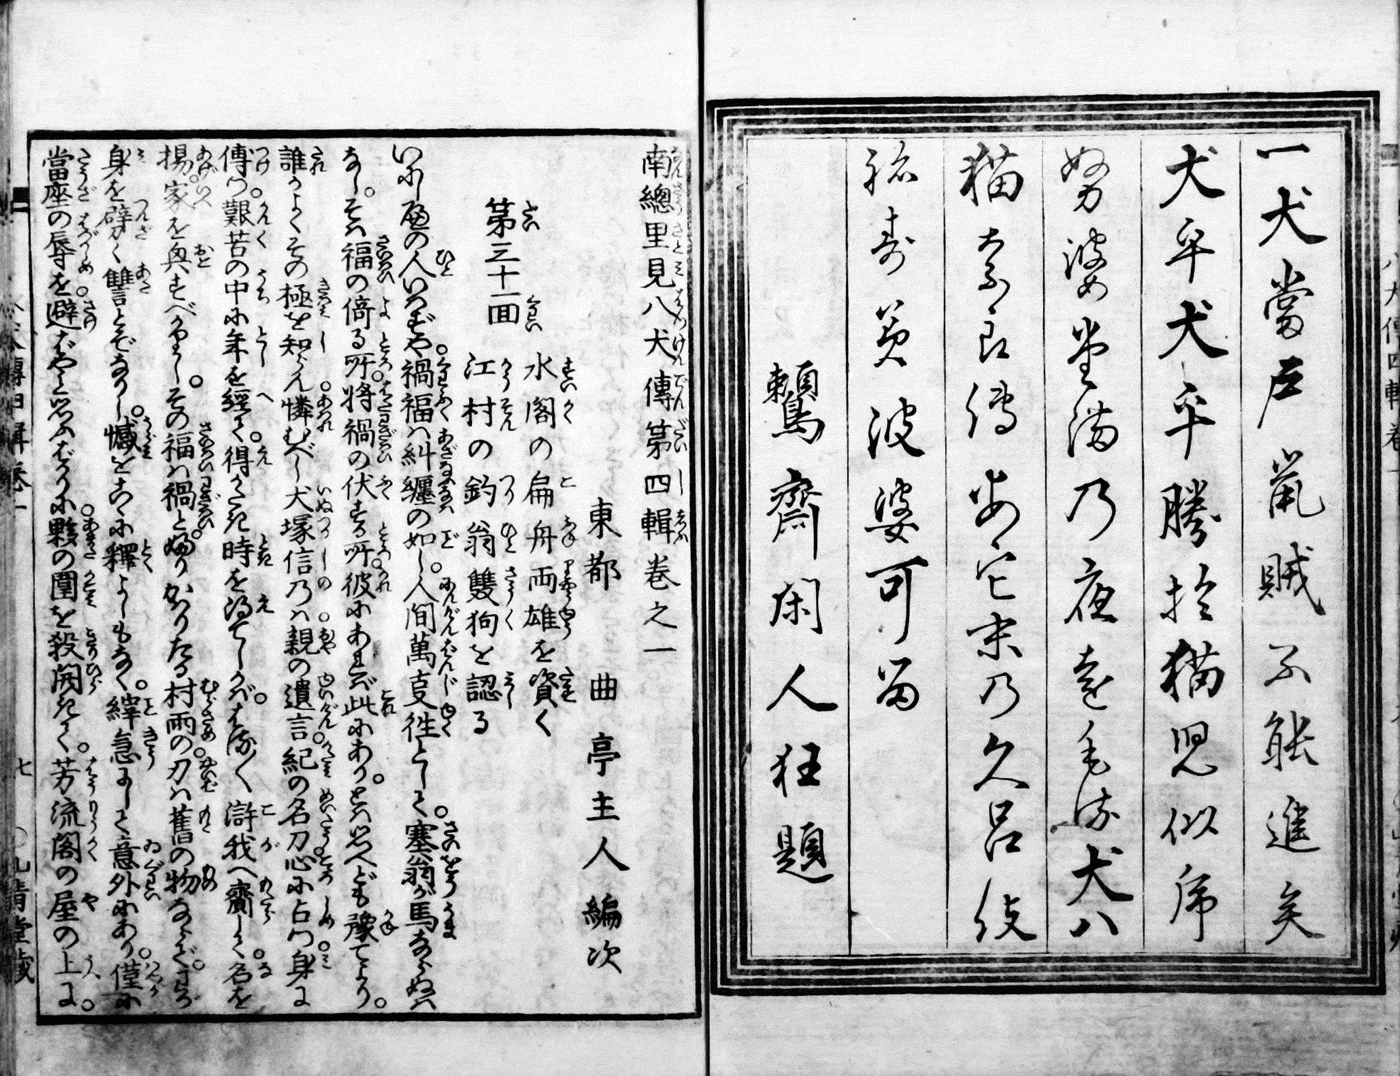 一犬當戸鼠賊不能進矣
犬乎犬乎勝於猫児似虎
努婆堂満乃夜遠毛流犬八
猫奈良傳安它末乃久呂伎
祢寿美波婆可留
齋閑人狂題
南總里見八犬傳第四輯巻之一
東都 曲亭主人編次
第三十一回 水閣の扁舟両雄を資く
江村の釣翁雙狗を認る
いにしへの人いはずや。禍福は糾纏の如し。人間萬事往として。塞翁が馬ならぬは
なし。そは福の倚る所。将禍の伏する所。彼にあれば此にあり。とは思へども豫てより。
誰かよくその極を知らん。憐むべし犬塚信乃は。親の遺言紀の名刀。心に占つ身に
傳つ。艱苦の中に年を經て。得がたき時を得てしかば。はる〲滸我へ齎して。名を
揚。家を興すべかりし。その福は禍と。ふりかはりたる村雨の。刀は舊の物ならで。
身を劈く讐とぞなりし。憾をこゝに釋よしもなく。緯急にして意外にあり。僅に
當座の辱を避ばやと思ふばかりに。夥の圍を殺開きて。芳流閣の屋の上に。